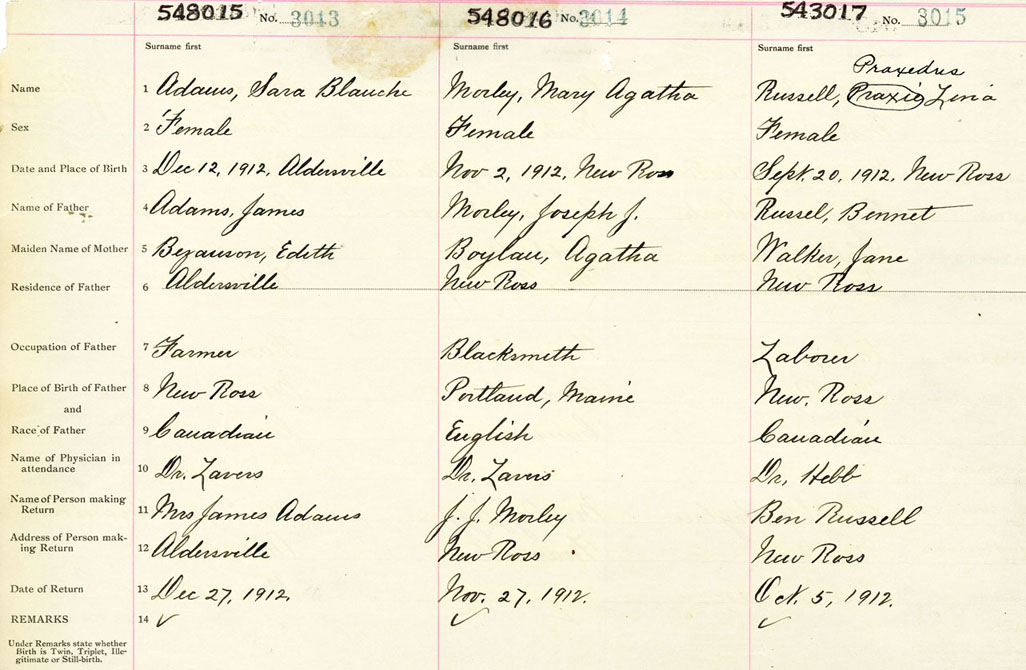 548015 No. 3013 548016 No. 3014 543017 No. 3015
Surname first Surname first Surname first
Praxedus
Name 1 Adams, Sara Blanche Morley, Mary Agatha Russell, Praxie Lena
Sex 2 Female Female Female
Date and Place of Birth 3 Dec 12, 1912, Aldersville Nov 2, 1912, New Ross Sept. 20, 1912, New Ross
Name of Father 4 Adams, James Morley, Joseph J. Russel, Bennet
Maiden Name of Mother 5 Bezanson, Edith Boylan, Agatha Walker, Jane
Residence of Father 6 Aldersville New Ross New Ross
Occupation of Father 7 Farmer Blacksmith Laborer
Place of Birth of Father 8 New Ross Portland, Maine New. Ross
and
Race of Father 9 Canadian English Canadian
Name of Physician in
attendance 10 Dr. Lavers Dr. Lavers Dr, Hebb
Name of Person making
Return 11 Mrs James Adams J. J. Morley Ben Russell
Address of Person mak-
ing Return 12 Aldersville New Ross New Ross
Date of Return 13 Dec 27, 1912. Nov. 27, 1912. Oct. 5, 1912.
REMARKS 14 ✓ ✓ ✓
Under Remarks state whether
Birth is Twin, Triplet, Ille-
gitimate or Still-birth.